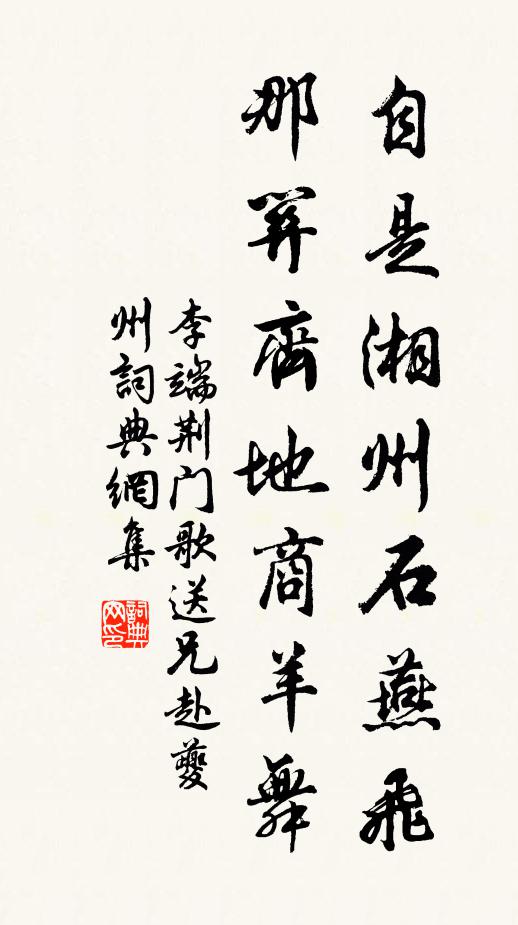 自是湘州石燕飛
那関齊地商羊舞
李端荆门歌送兄赴夔
州詞典網集
詞典网印